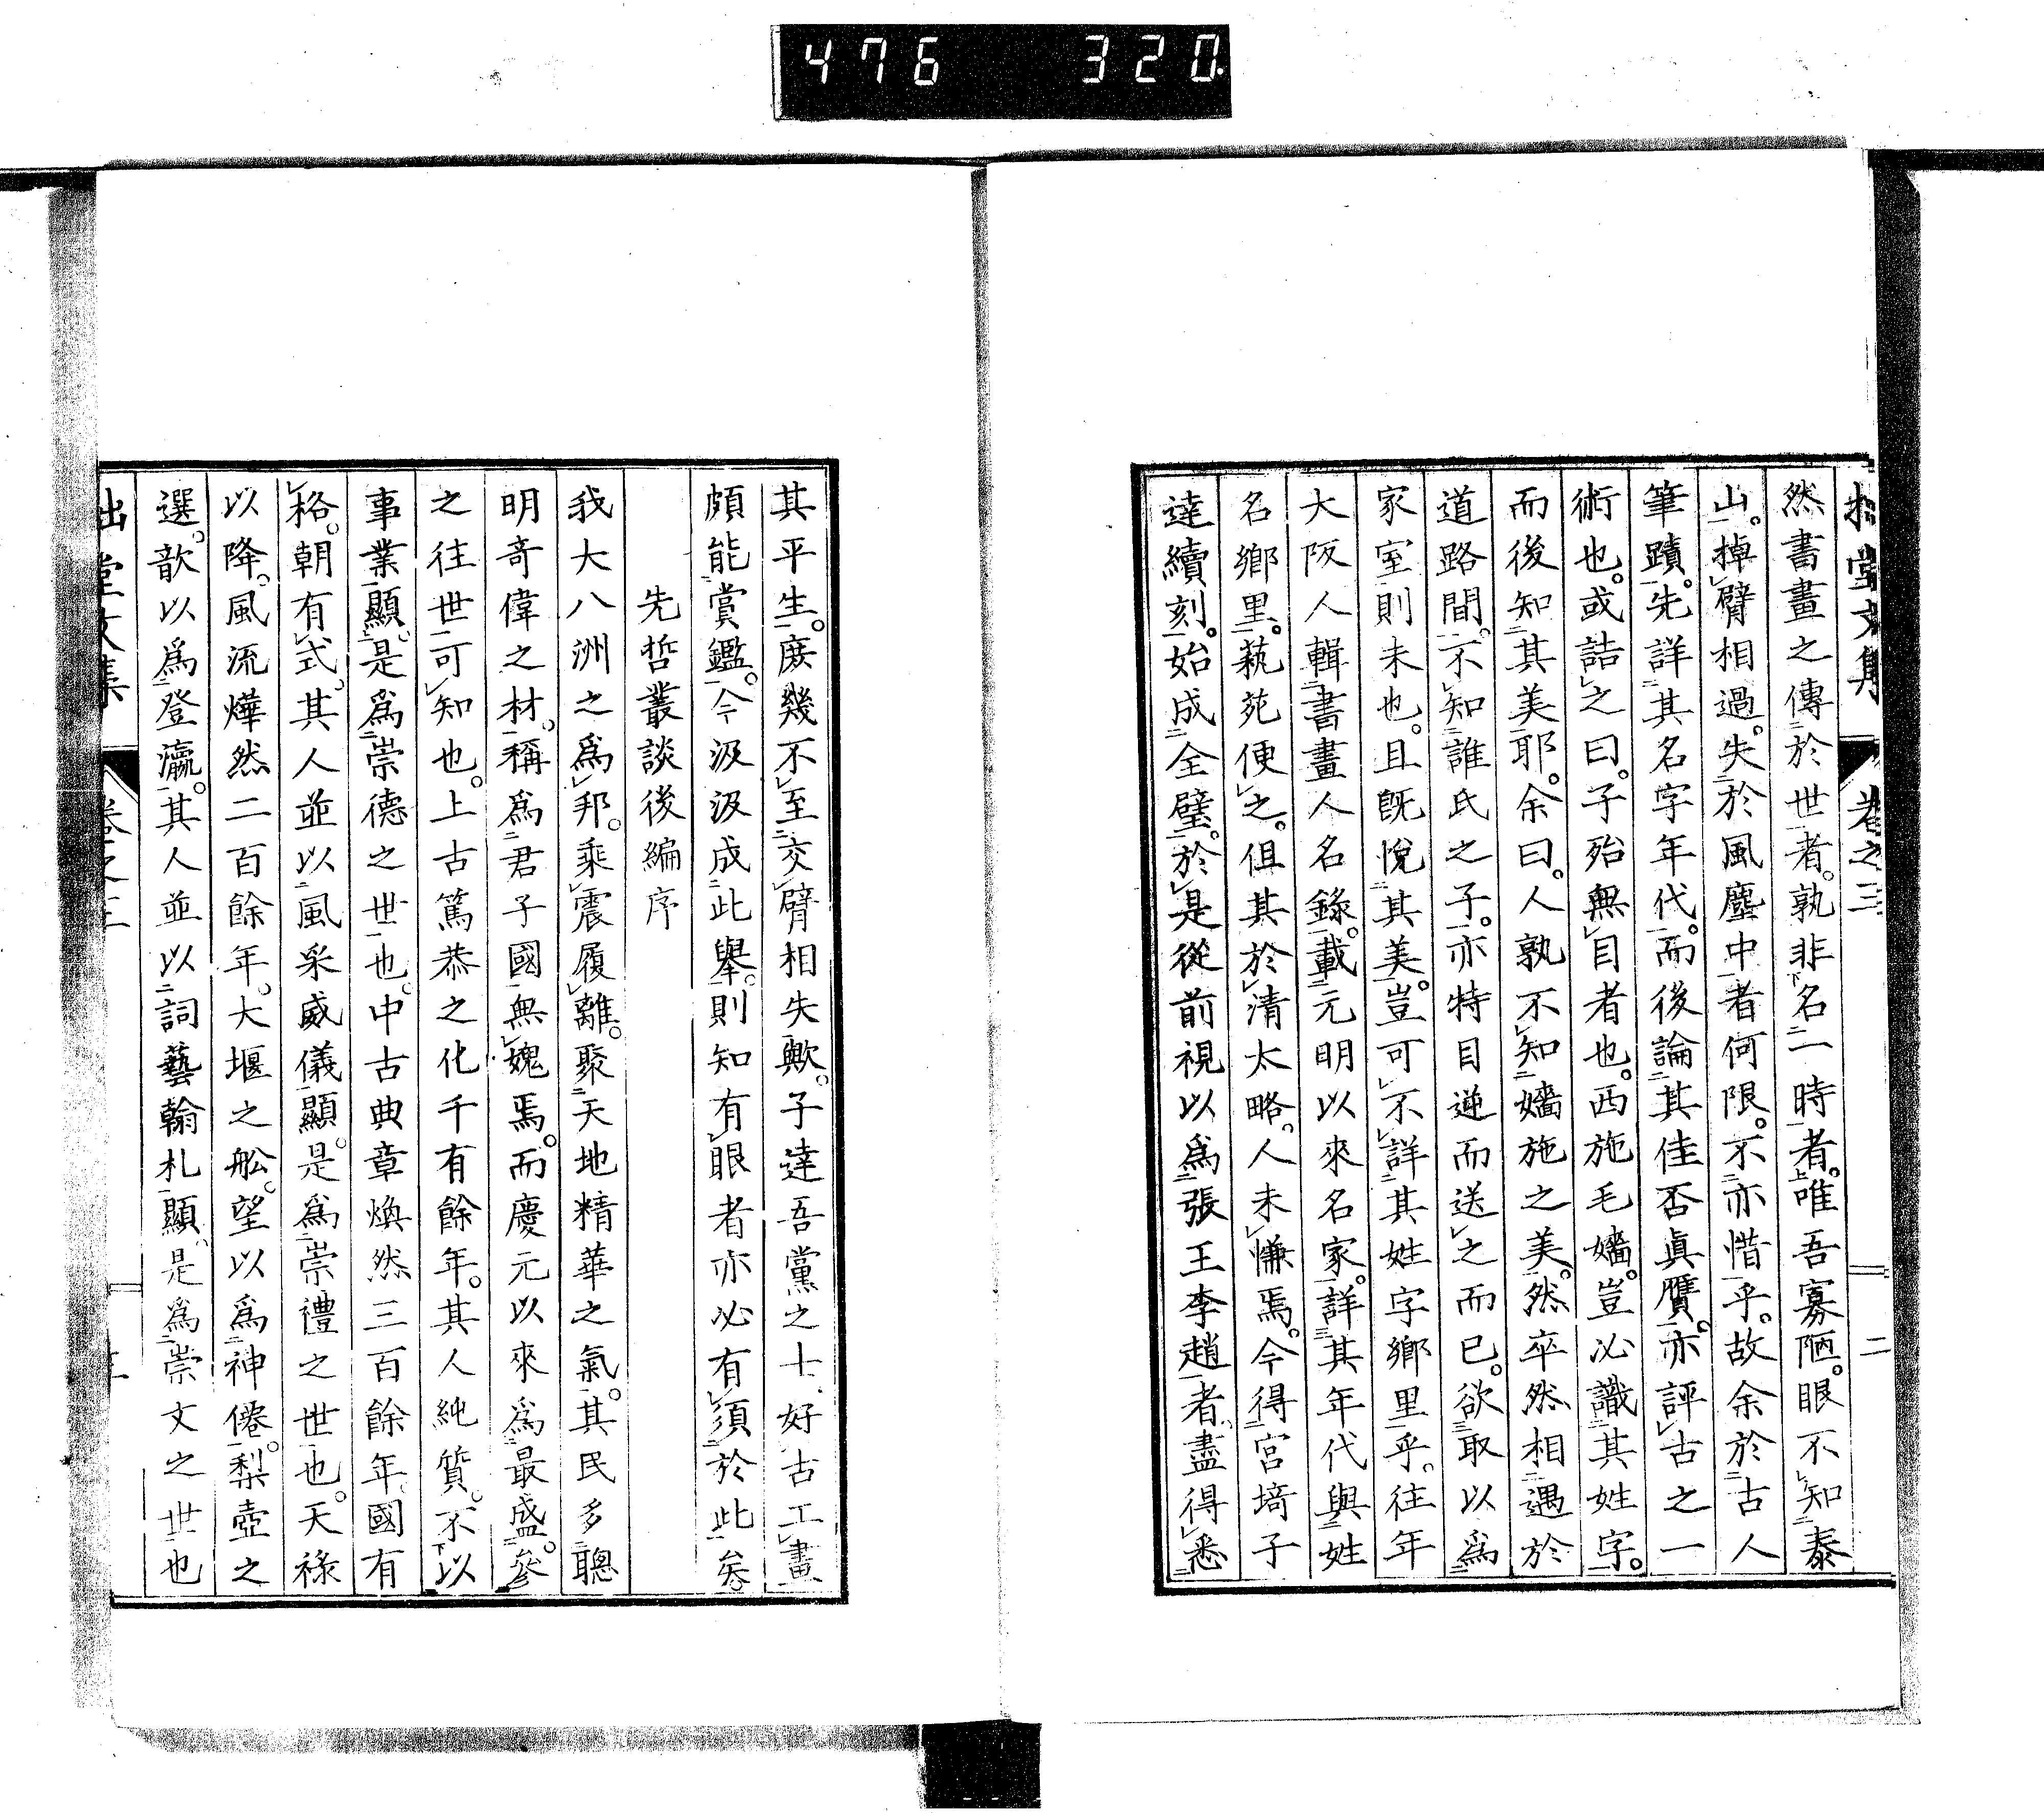 476 320
拙堂文集 卷之三 二
然書畫之傳於世者。孰非名一時者。唯吾寡陋。眼不知泰
山。掉臂相過。失於風塵中者何限。不亦惜乎。故余於古人
筆蹟。先詳其名字年代。而後論其佳否眞贋。亦評古之一
術也。或詰之曰。子殆無目者也。西施毛嬙。豈必識其姓字。
而後知其美耶。余曰。人孰不知嬙施之美。然卒然相遇於
道路間。不知誰氏之子。亦特目逆而送之而已。欲取以爲
家室則未也。且既悅其美。豈可不詳其姓字鄉里乎。往年
大阪人輯書畫人名錄。載元明以來名家。詳其年代與姓
名鄉里。藝苑便之。但其於清太略。人未慊焉。今得宮埼子
達續刻。始成全璧。於是從前視以爲張王李趙者。盡得悉
其平生。庶幾不至交臂相失歟。子達吾黨之士。好古工畫
頗能賞鑑。今汲汲成此舉。則知有眼者亦必有須於此矣。
先哲叢談後編序
我大八洲之爲邦。乘震履離。聚天地精華之氣。其民多聰
明奇偉之材。稱爲君子國無媿焉。而慶元以來爲最盛。參
之往世可知也。上古篤恭之化千有餘年。其人純質。不以
事業顯。是爲崇德之世也。中古典章煥然三百餘年。國有
格。朝有式。其人並以風采威儀顯。是爲崇禮之世也。天祿
以降。風流燁然二百餘年。大堰之舩。望以爲神僊。梨壺之
選。歆以爲登瀛。其人並以詞藝翰札顯。是爲崇文之世也
拙堂文集 卷之三